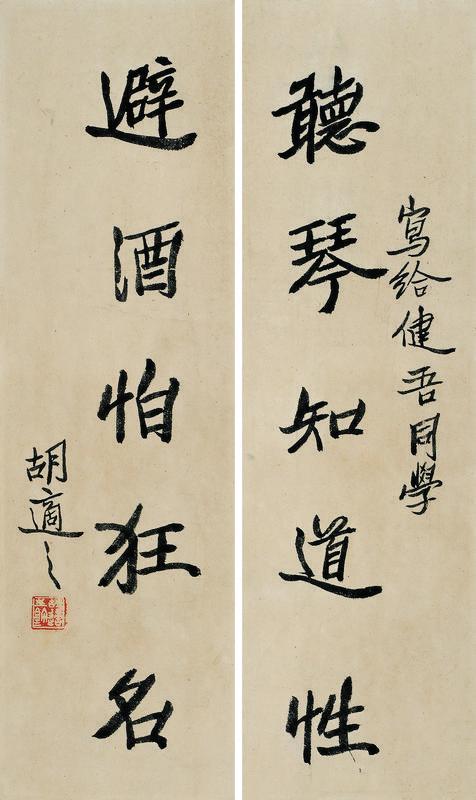 寫給健吾同學
聽琴知道性
避酒怕狂名
胡適之